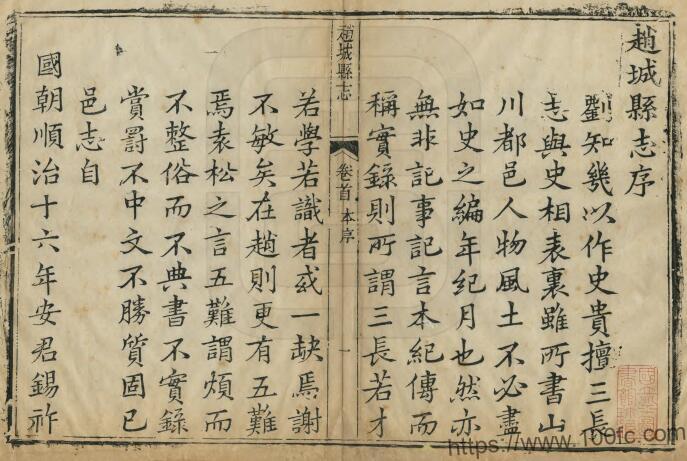 趙城縣志序
劉知幾以作史貴擅三長
志與史相表裏雖所書山
川都邑人物風土不必盡
如史之編年紀月也然亦
無非記事記言本紀傳而
稱實錄則所謂三長若才
趙城縣志
卷首 本序
一
若學若識者或一缺焉謝
不敏矣在趙則更有五難
焉袁松之言五難謂煩而
不整俗而不典書不實錄
賞罰不中文不勝質固已
邑志自
國朝順治十六年安君錫祚
https://www.100fc.com